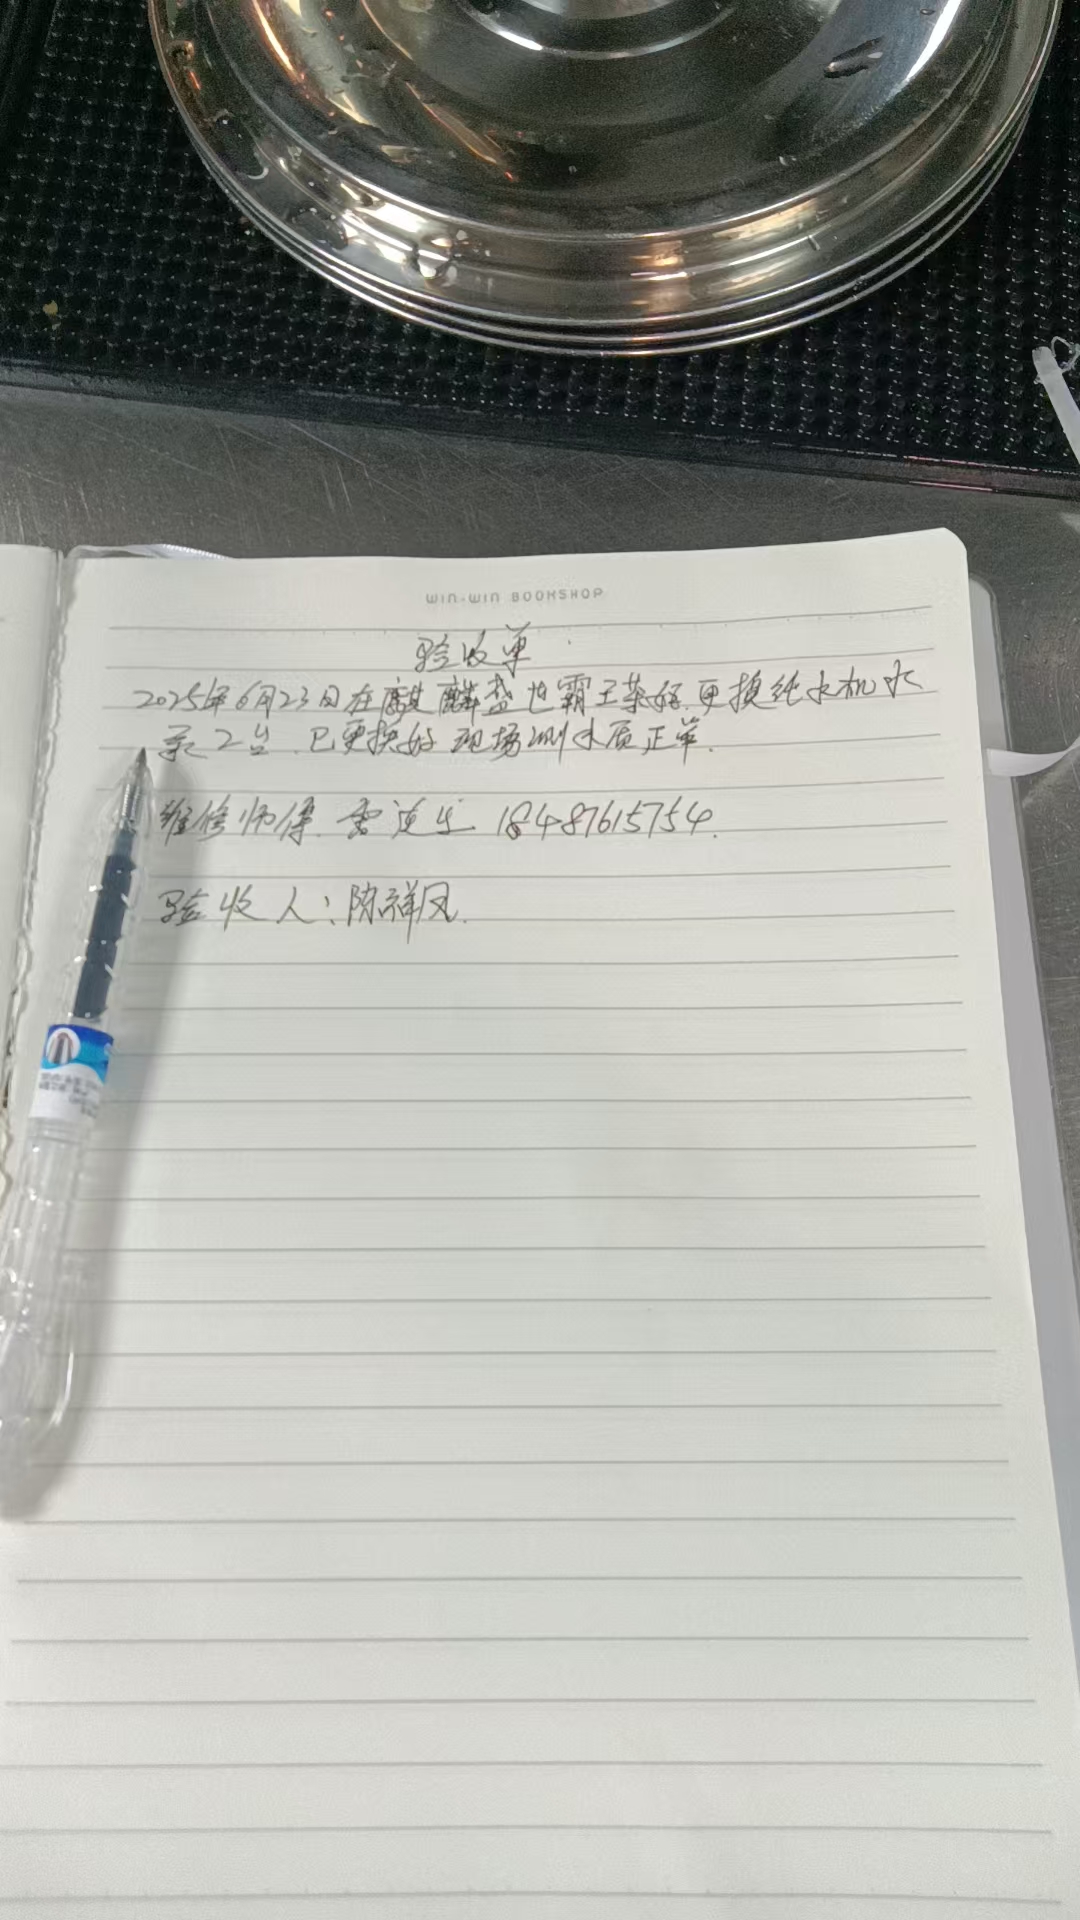 WIN-WIN BOOKSHOP
验收单
2025年6月23日在麒麟盛世霸王茶姬.更换纯水机水
泵2台.已更换好 现场测水质正常.
维修师傅.雷 生 18487615754.
验收人:陈祥凤.